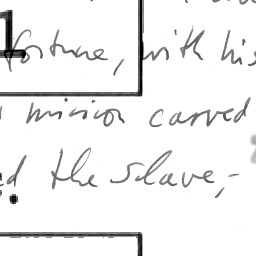 1
fortune, with his
mission carved
ed the slave,-